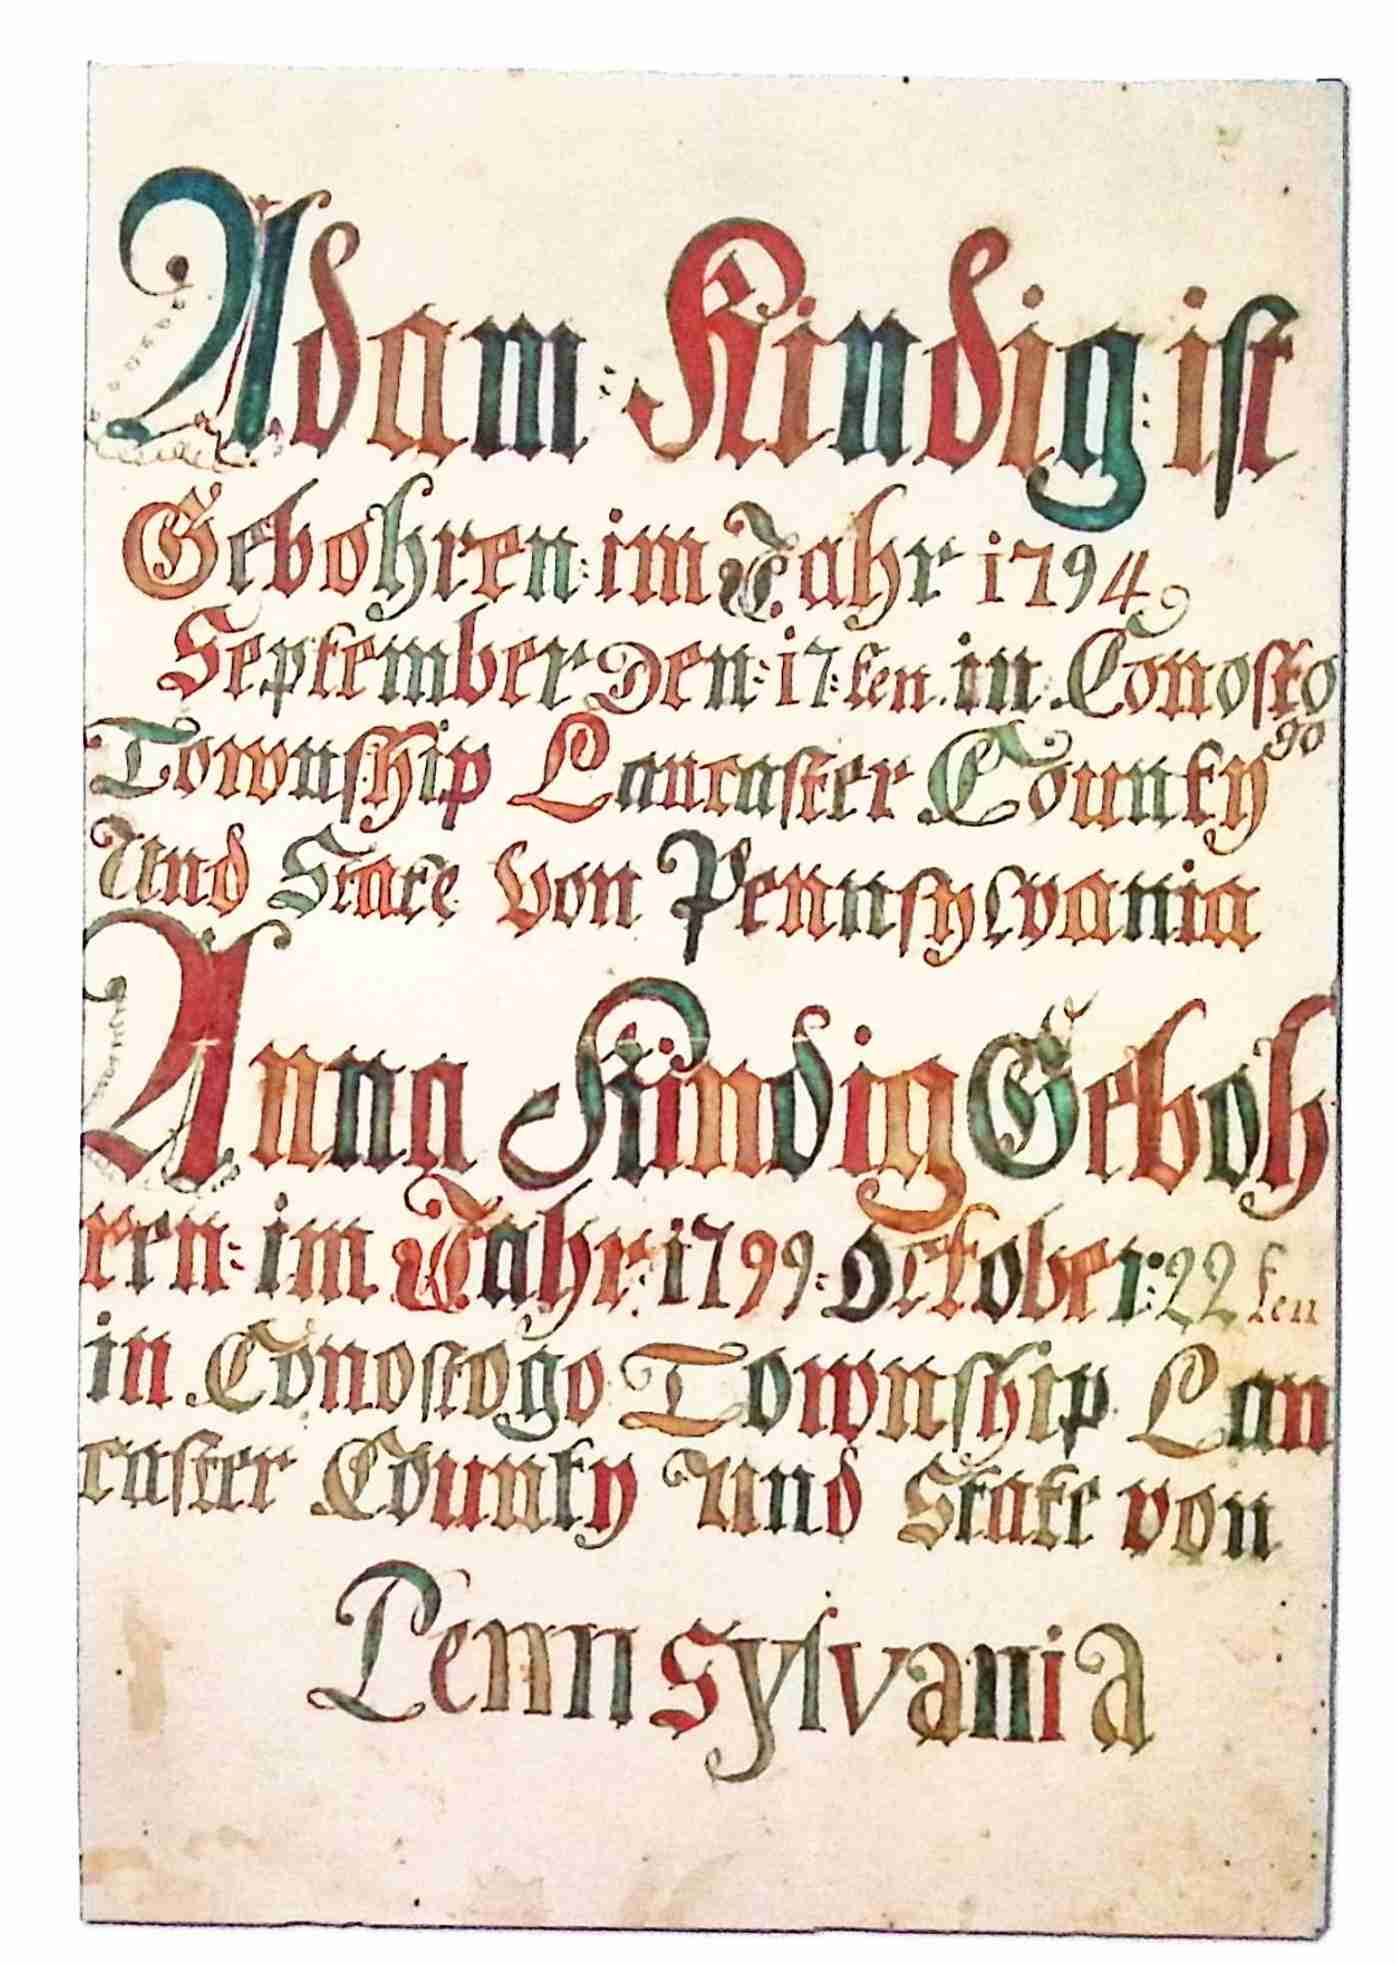 Adam: Kindig: ist
Gebohren: im Jahr 1794
September Den: 17: ten in Conosto
go
Township Lancaster County
Und State von Pennsylvania
Anna Kindig Geboh
ren: im Jahr: 1799: October: 22 ten
in Conostogo Township Lan
caster County Und State von
Pennsylvania